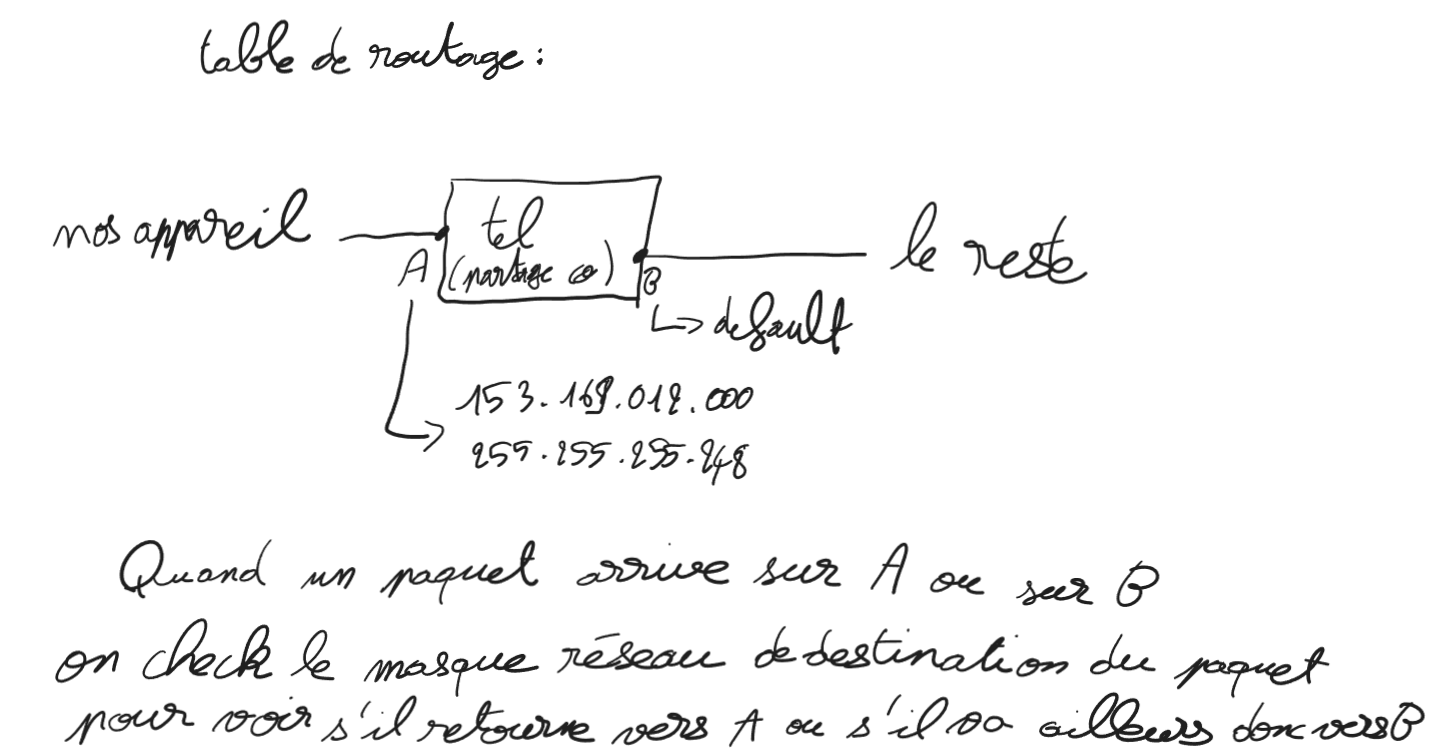 table de routage :
nos appareil
tel
(partage co)
A
B
le reste
↳ default
153.168.012.000
255.255.255.248
Quand un paquet arrive sur A ou sur B
on check le masque réseau de destination du paquet
pour voir s'il retourne vers A ou s'il va ailleurs donc vers B